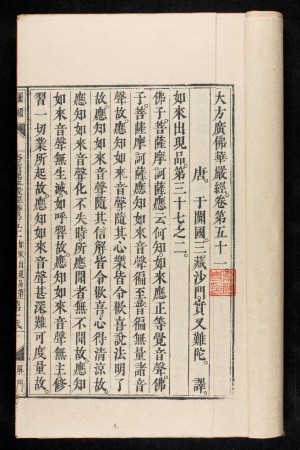 大方廣佛華嚴經卷第五十一
唐。于闐國三藏沙門。實叉難陀。譯。
如來出現品。第三十七之二。
佛子。菩薩摩訶薩應云何知如來應正等覺音聲。佛
子。菩薩摩訶薩應知如來音聲徧至。普徧無量諸音
聲故。應知如來音聲隨其心樂皆令歡喜。說法明了
故。應知如來音聲隨其信解皆令歡喜。心得清涼故。
應知如來音聲化不失時。所應聞者無不聞故。應知
如來音聲無生滅。如呼響故。應知如來音聲無主。修
習一切業所起故。應知如來音聲甚深。難可度量故。